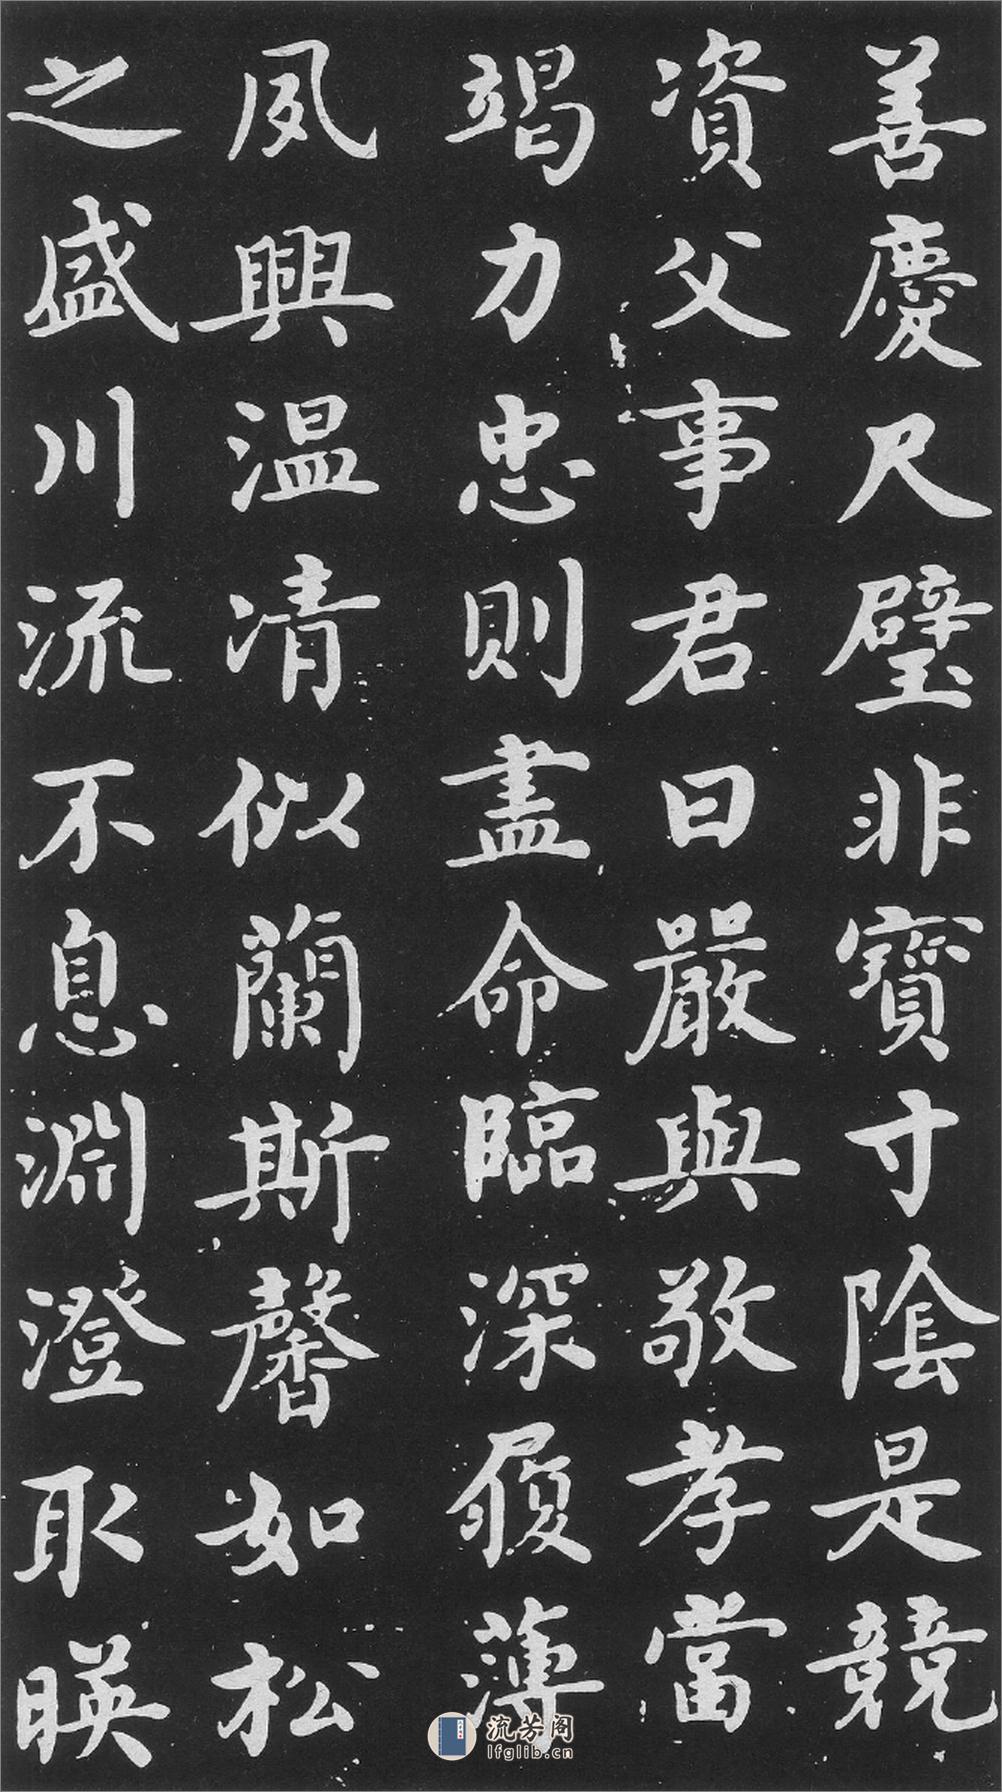 善慶尺璧非寶寸陰是競
資父事君曰嚴與敬孝當
竭力忠則盡命臨深履薄
夙興温凊似蘭斯馨如松
之盛川流不息淵澄取暎
流芳阁
lfglib.cn